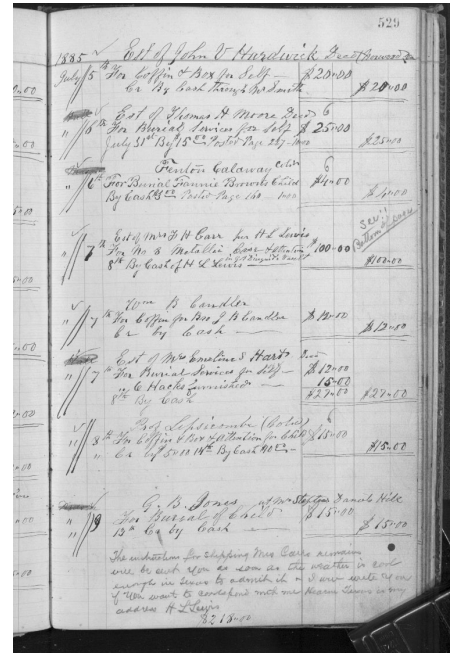 529
1885 Est of John V Hardwick Dead
July 5th For Coffin & Box for Self — $20.00
Cr By Cash through Mr Smith $20.00
Est of Thomas H Moore Dead 6
" 6th For Burial Services for Self $25.00
July 31st By $15.00 Posted Page $25.00
Fenton Calaway Cold 6
" 6th For Burial Fannie Browns Child $4.00
By Cash $3.00 Posted Page 160 $4.00
See
Bottom of page
Est of Mrs F H Carr for H L Lewis
" 7th For No 8 Metallic Case & Attention $100.00
8th By Cash of H L Lewis — $100.00
Wm B Candler
" 7th For Coffin for Bro J B Candler $12.00
Cr by Cash — $12.00
Est of Mrs Emeline S Hart
" 7th For Burial Services for Self — $12.00
" 6 Hacks furnished — 15.00
8th By Cash $27.00 $27.00
of Lipscombe (Cold) 6
" 8th For Coffin & Box & Attention for Child $15.00
" Cr by 14th By Cash $15.00
G. B. Jones at Mrs
" 9 For Burial of Child $15.00
" 13th Cr by Cash — $15.00
The instructions for shipping Mrs Carrs remains
will be sent you as soon as the weather is cool
enough in Texas to admit it or I will write you
if you want to correspond with me Hearne Texas is my
address H L Lewis
$218.00